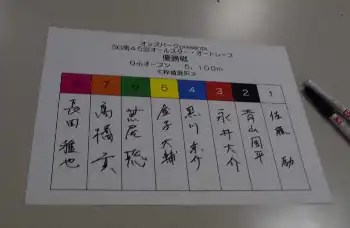 オッズパークpresents
SG第45回オールスター・オートレース
優勝戦
0mオープン 5,100m
≪枠番選択≫
8 7 6 5 4 3 2 1
長田 稚也
高橋 貢
荒尾 聡
金子 大輔
黒川 京介
永井 大介
青山 周平
佐藤 励